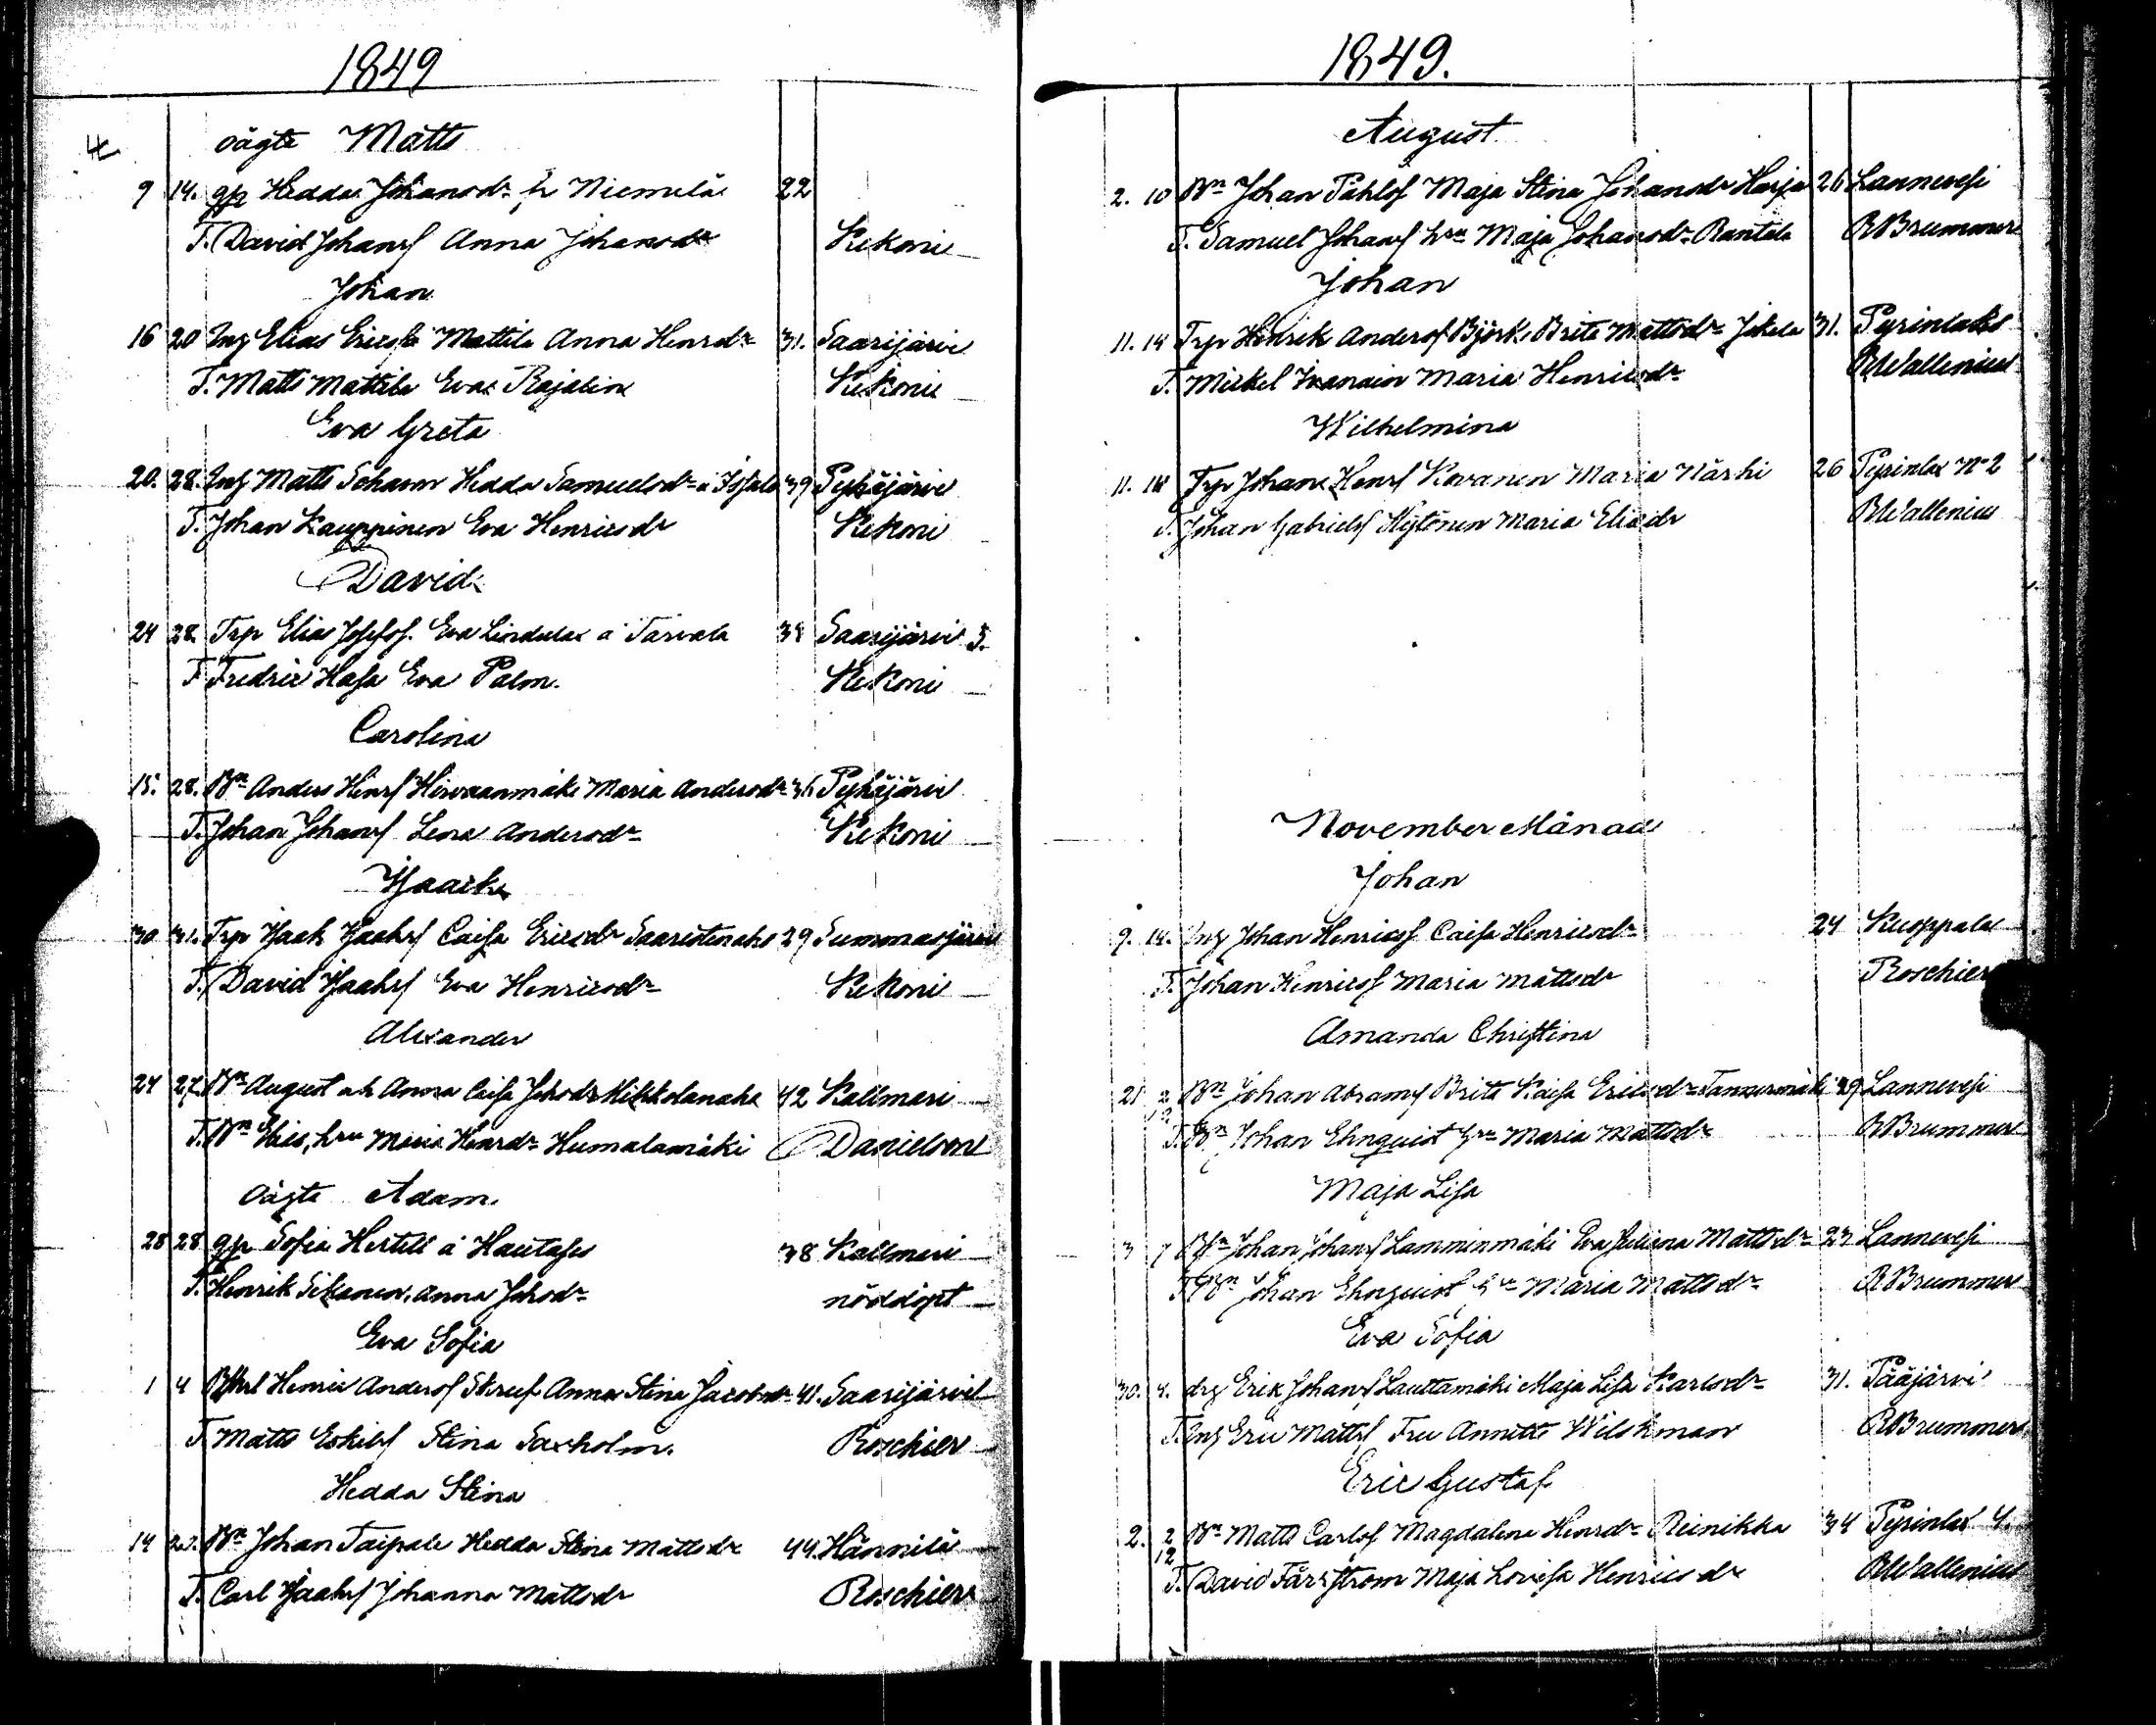 1849
oägte Matts
9 14. gp Hedda Johansdr fr Niemelä 22
T. David Johansf Anna Johansdr Kekoni
Johan
16 20 Ing Elias Ericsf Mattila Anna Henrdr 31. Saarijärvi
T. Matts Mattila Eva Rajalin Kekoni
Eva Greta
20. 28. Ing Matts Johansn Hedda Samuelsdr 39 Pyhäjärvi
T. Johan Kauppinen Eva Henricsdr Kekoni
David
24 28. Trp Elias Josefsf. Eva Lindula å Tarvala Saarijärvi 3.
T Fredric Hasa Eva Palm. Kekoni
Carolina
15. 28. Bn Anders Henrsf Hirvaanmäki Maria Andersdr 36 Pyhäjärvi
T. Johan Johansf Lena Andersdr Kekoni
Isaack
30 31. Trp Isaak Isaaksf Caisa Ericsdr Saaristenaho 29 Summasjärvi
T. David Isaaksf Eva Henricsdr Kekoni
Alexander
24 27. Bn August Anna Caisa Johsdr Mikkolanaho 42 Kallmari
T. Bn Elias, hru Maria Henrdr Humalamäki Danielson
Oägte Adam.
28 28 gp Sofia Hertell å Hautaho 38 Kallmari
T. Henrik Sikanen, Anna Johsdr nöddöpt
Eva Sofia
1 4 Henric Andersf Skruf Anna Stina Jacobsdr 41. Saarijärvi
T. Matts Eskilsf Stina Saxholm. Roschier
Hedda Stina
14 Bn Johan Taipale Hedda Stina Mattsdr 44. Hännilä
T. Carl Isaaksf Johanna Mattsdr Roschier
1849.
August
2. 10 Bn Johan Påhlsf Maja Stina Johansdr Harja 26 Lannevesi
T. Samuel Johansf hru Maja Johansdr Rantala RBrummer
Johan
11. 14 Trp Henrik Andersf Björk, Brita Mattsdr Jokela 31. Pyrinlaks
T. Mickel Ikanain Maria Henricsdr RWallenius
Wilhelmina
11. 14 Trp Johan Henrsf Kovanen Maria Närhi 26 Pyrinlax No 2
T. Johan Gabrielsf Hytönen Maria Eliadr RWallenius
November Månad
Johan
9. 14. Ing Johan Henricsf Caisa Henricsdr 24 Kuoppala
T. Johan Henricsf Maria Mattsdr Roschier
Amanda Christina
21 2/12 Bn Johan Abramsf Brita Kaisa Ericsdr Tannermäki 29 Lannevesi
T. Bn Johan Ehnquist hru Maria Mattsdr RBrummer
Maja Lisa
3 7 Bn Johan Johansf Lamminmäki Eva Juliana Mattsdr 23 Lannevesi
T Bn Johan Ehnquist hru Maria Mattsdr RBrummer
Eva Sofia
30. 4. drg Erik Johansf Lauttamäki Maja Lisa Karlsdr 31. Pääjärvi
T. Ing Eric Mattsf Fru Annette Wilskman RBrummer
Eric Gustaf
2. 2/12 Bn Matts Carlsf Magdalena Henrdr Reinikka 34 Pyrinlax 4.
T. David Färström Maja Lovisa Henricsdr RWallenius